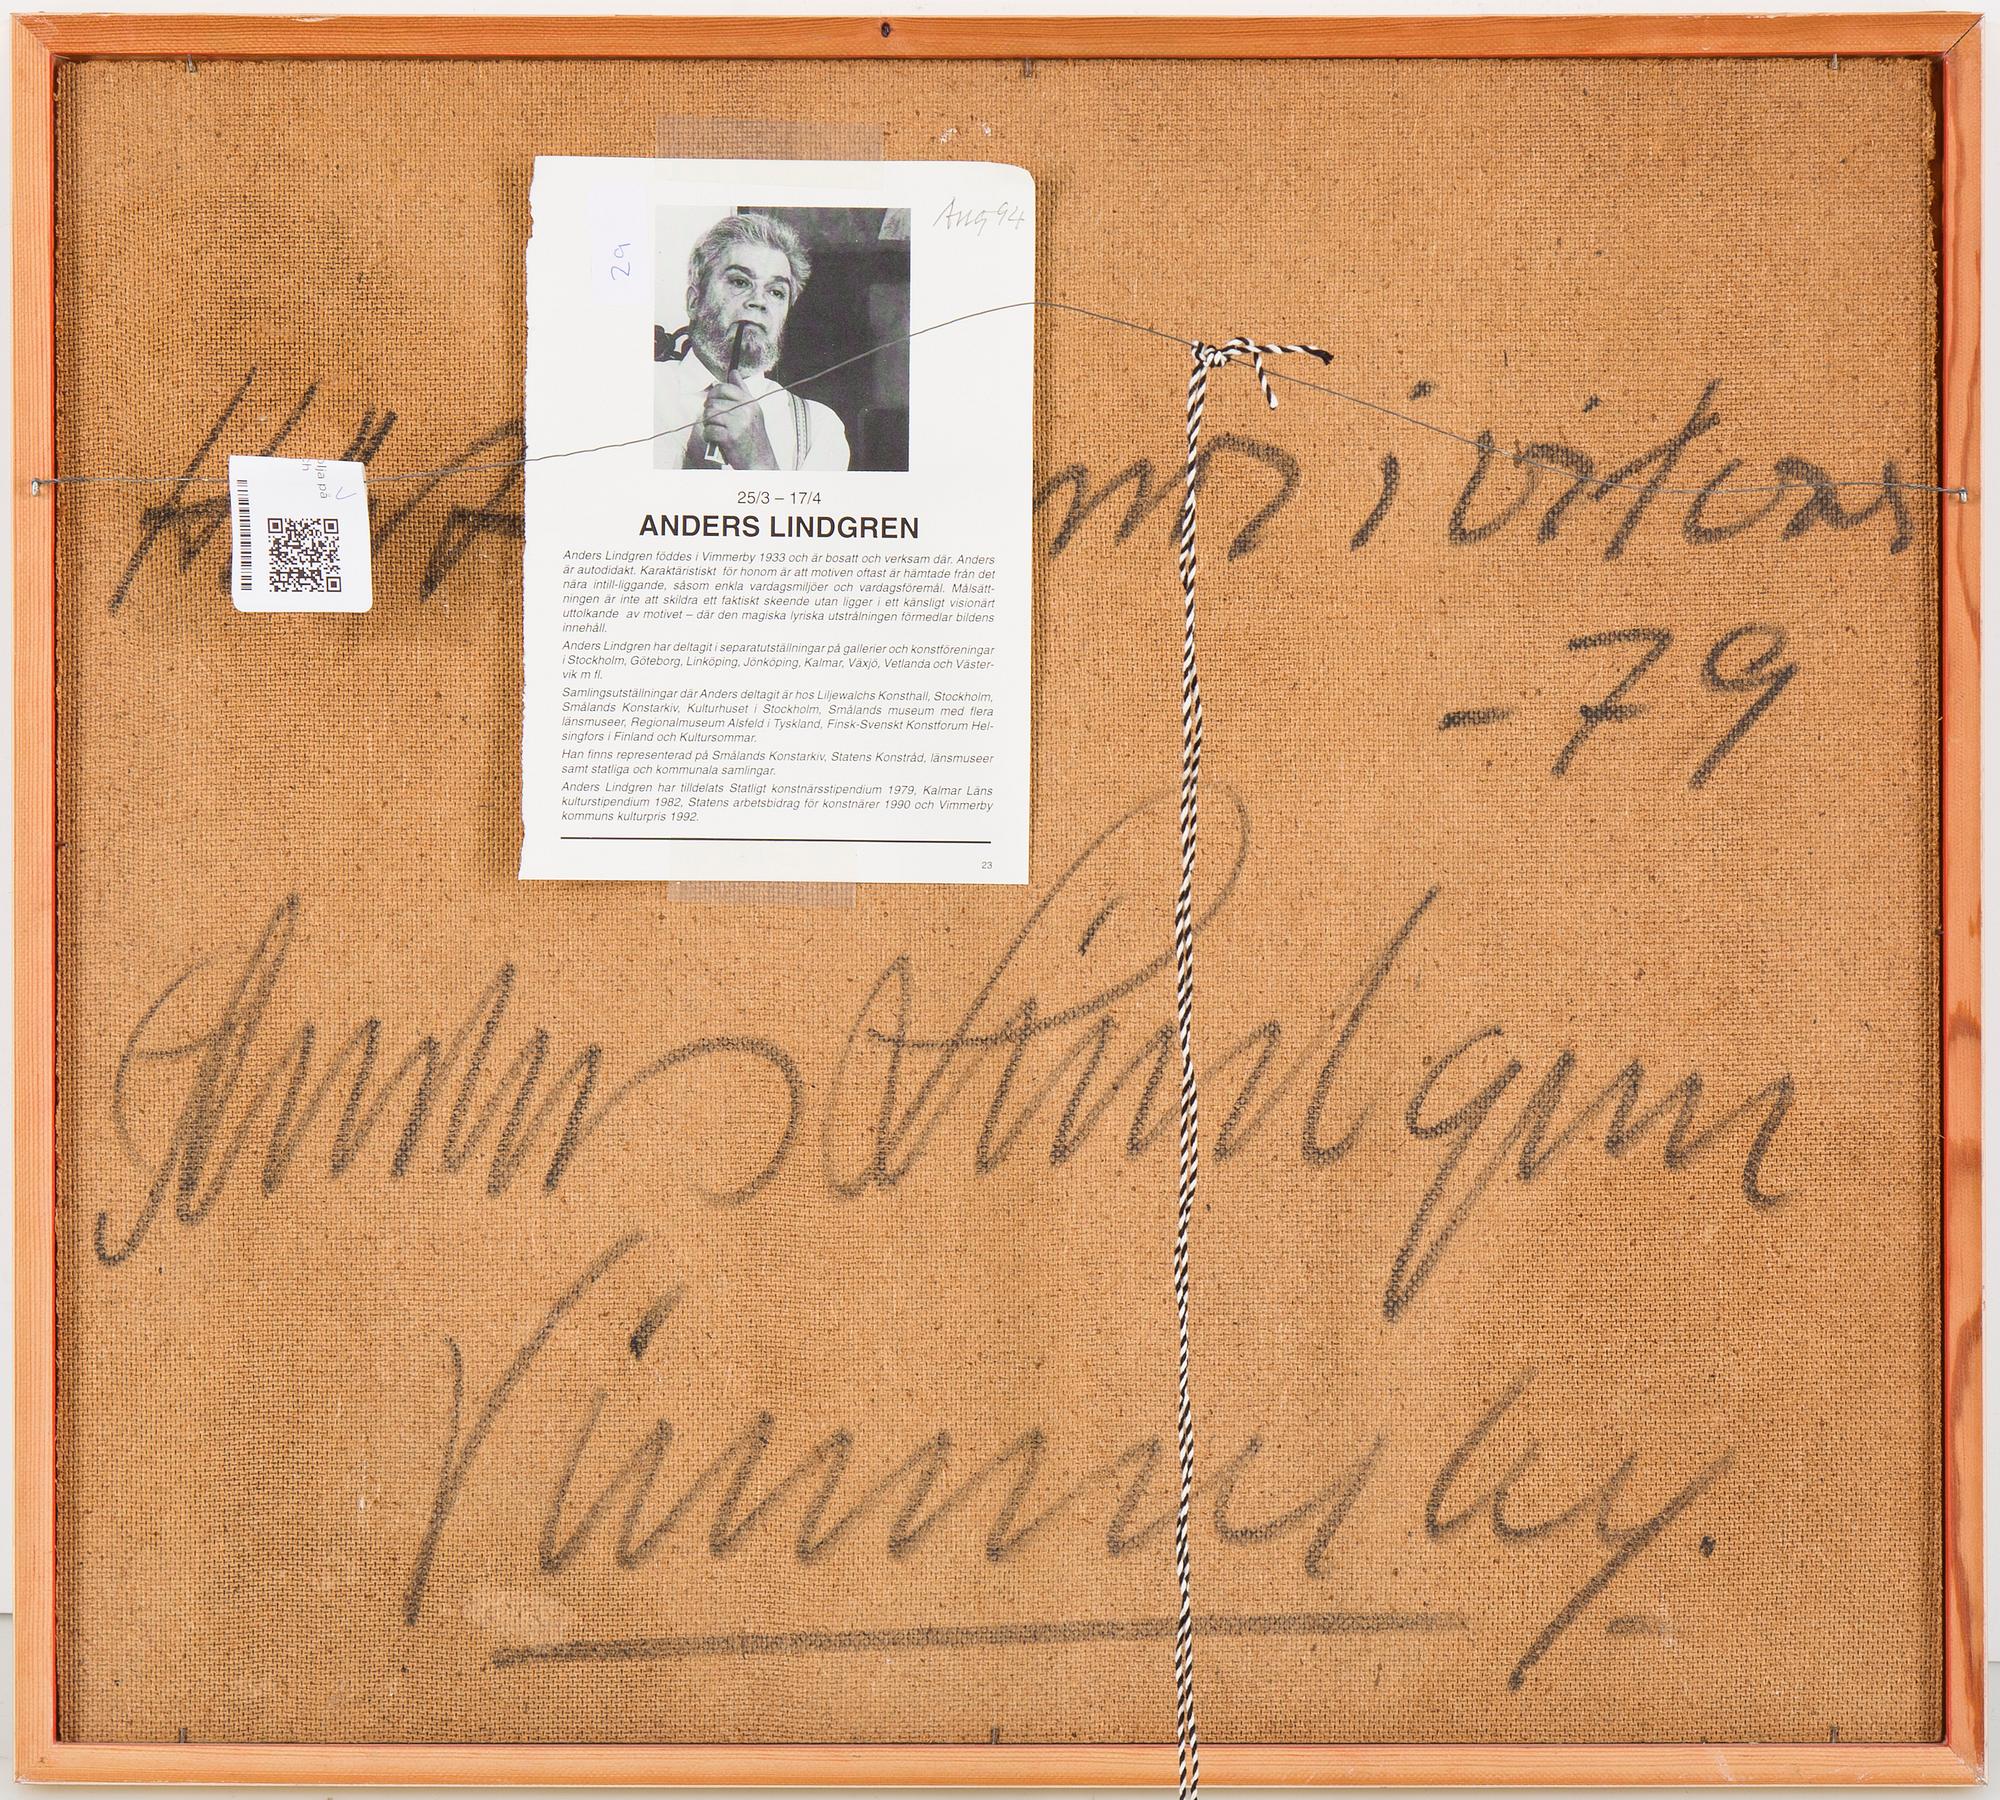 Aug 94
29
25/3 – 17/4
ANDERS LINDGREN
Anders Lindgren föddes i Vimmerby 1933 och är bosatt och verksam där. Anders
är autodidakt. Karaktäristiskt för honom är att motiven oftast är hämtade från det
nära intill-liggande, såsom enkla vardagsmiljöer och vardagsföremål. Målsätt-
ningen är inte att skildra ett faktiskt skeende utan ligger i ett känsligt visionärt
uttolkande av motivet – där den magiska lyriska utstrålningen förmedlar bildens
innehåll.
Anders Lindgren har deltagit i separatutställningar på gallerier och konstföreningar
i Stockholm, Göteborg, Linköping, Jönköping, Kalmar, Växjö, Vetlanda och Väster-
vik m fl.
Samlingsutställningar där Anders deltagit är hos Liljewalchs Konsthall, Stockholm,
Smålands Konstarkiv, Kulturhuset i Stockholm, Smålands museum med flera
länsmuseer, Regionalmuseum Alsfeld i Tyskland, Finsk-Svenskt Konstforum Hel-
singfors i Finland och Kultursommar.
Han finns representerad på Smålands Konstarkiv, Statens Konstråd, länsmuseer
samt statliga och kommunala samlingar.
Anders Lindgren har tilldelats Statligt konstnärsstipendium 1979, Kalmar Läns
kulturstipendium 1982, Statens arbetsbidrag för konstnärer 1990 och Vimmerby
kommuns kulturpris 1992.
23
i
-79
Anders Lindgren
Vimmerby.